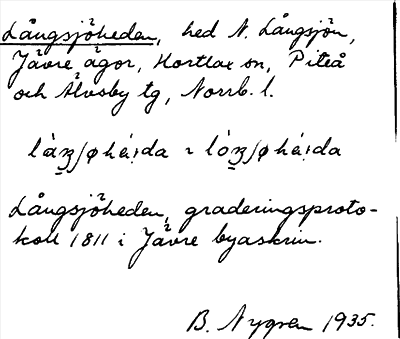 Långsjöheden, hed N. Långsjön,
Jävre ägor, Hortlax sn, Piteå
och Älvsby tg, Norrb. l.
Långsjöheden, graderingsproto-
koll 1811 i Jävre byaskrin.
B. Nygren 1935.